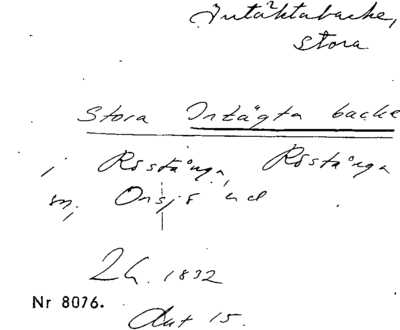 Intäktabacke,
stora
Stora Intägta backe
i Röstånga, Röstånga
sn, Onsjö hd
Lh. 1832
Nr 8076.
Akt 15.